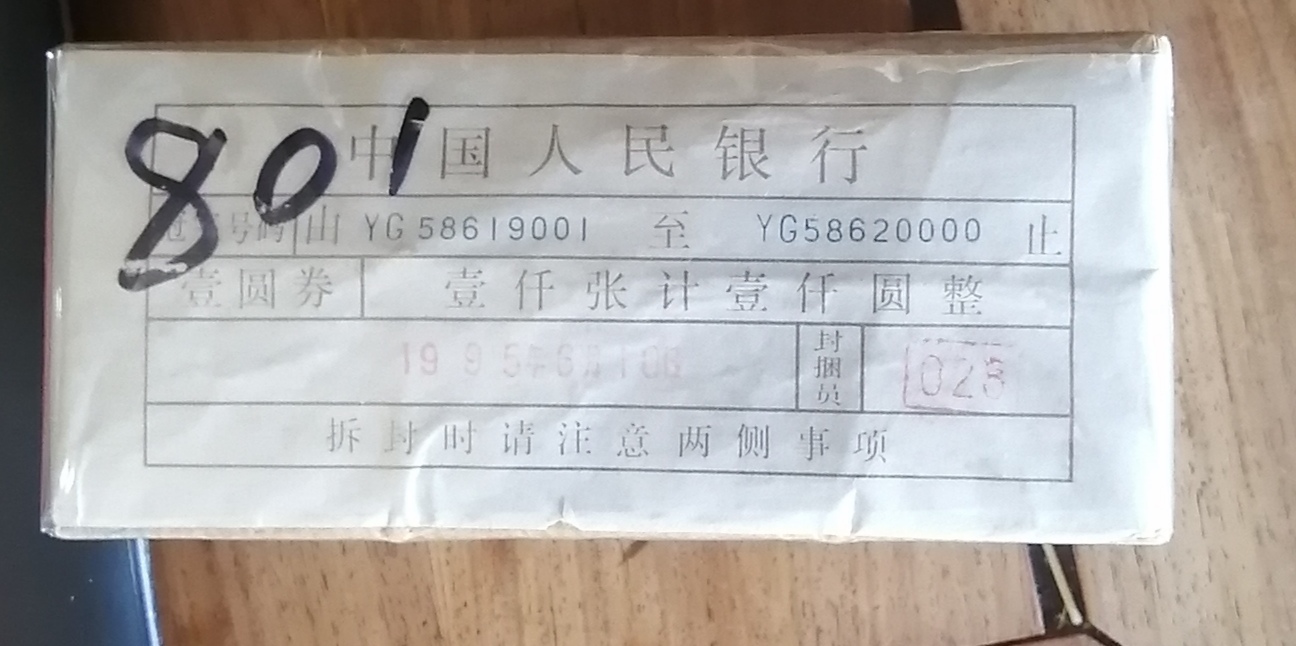 801
中国人民银行
冠字号码 由 YG 58619001 至 YG58620000 止
壹圆券 壹仟张计壹仟圆整
1995年 封捆员 023
拆封时请注意两侧事项